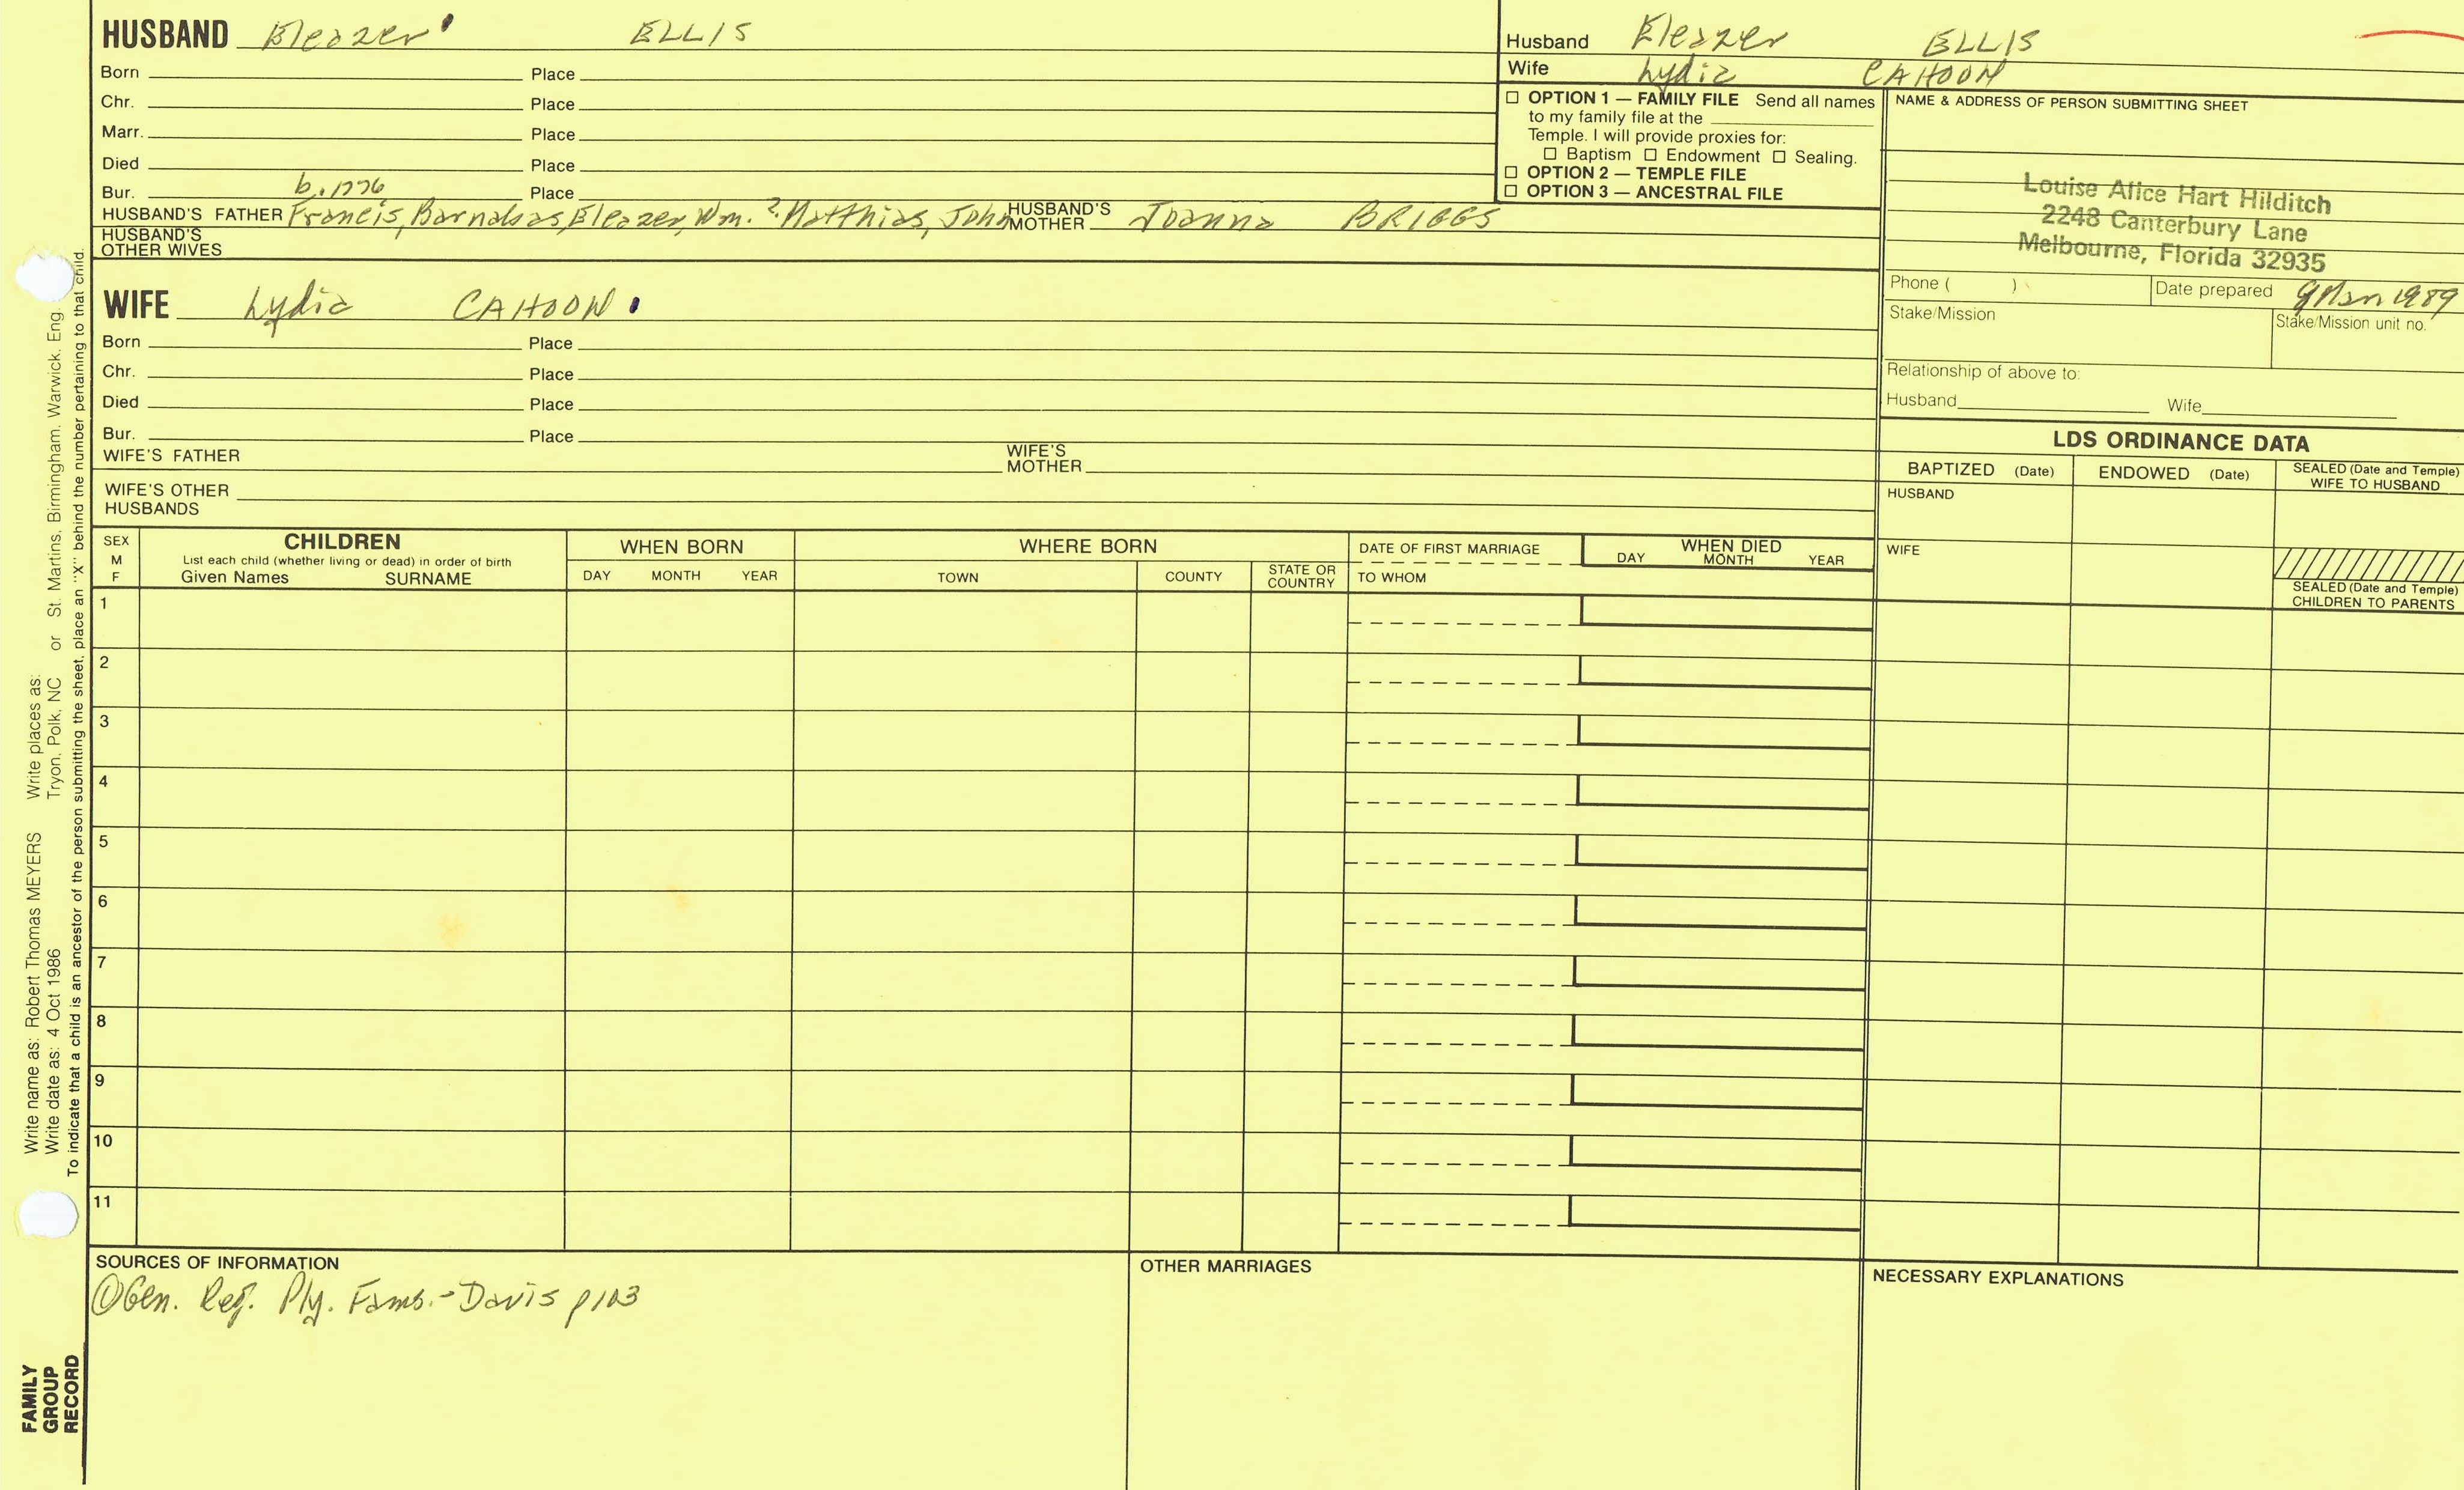 HUSBAND Eleazer ELLIS
Born Place
Chr. Place
Marr. Place
Died Place
Bur. b. 1776 Place
HUSBAND'S FATHER Francis, Barnabas, Eleazer, Wm. ?. Matthias, John HUSBAND'S MOTHER Joanna BRIGGS
HUSBAND'S OTHER WIVES
WIFE Lydia CAHOON
Born Place
Chr. Place
Died Place
Bur. Place
WIFE'S FATHER WIFE'S MOTHER
WIFE'S OTHER HUSBANDS
Husband Eleazer ELLIS
Wife Lydia CAHOON
☐ OPTION 1 — FAMILY FILE Send all names
to my family file at the
Temple. I will provide proxies for:
☐ Baptism ☐ Endowment ☐ Sealing.
☐ OPTION 2 — TEMPLE FILE
☐ OPTION 3 — ANCESTRAL FILE
NAME & ADDRESS OF PERSON SUBMITTING SHEET
Louise Alice Hart Hilditch
2248 Canterbury Lane
Melbourne, Florida 32935
Phone ( ) Date prepared 1989
Stake/Mission Stake/Mission unit no.
Relationship of above to:
Husband Wife
LDS ORDINANCE DATA
BAPTIZED (Date) ENDOWED (Date) SEALED (Date and Temple) WIFE TO HUSBAND
HUSBAND
WIFE
SEALED (Date and Temple) CHILDREN TO PARENTS
SEX M F
CHILDREN
List each child (whether living or dead) in order of birth
Given Names SURNAME
WHEN BORN
DAY MONTH YEAR
WHERE BORN
TOWN COUNTY STATE OR COUNTRY
DATE OF FIRST MARRIAGE
TO WHOM
WHEN DIED
DAY MONTH YEAR
1
2
3
4
5
6
7
8
9
10
11
SOURCES OF INFORMATION
① Gen. Reg. Ply. Fams. - Davis p103
OTHER MARRIAGES
NECESSARY EXPLANATIONS
Write name as: Robert Thomas MEYERS Write places as:
Write date as: 4 Oct 1986 Tryon, Polk, NC or St. Martins, Birmingham, Warwick, Eng.
To indicate that a child is an ancestor of the person submitting the sheet, place an "X" behind the number pertaining to that child.
FAMILY
GROUP
RECORD